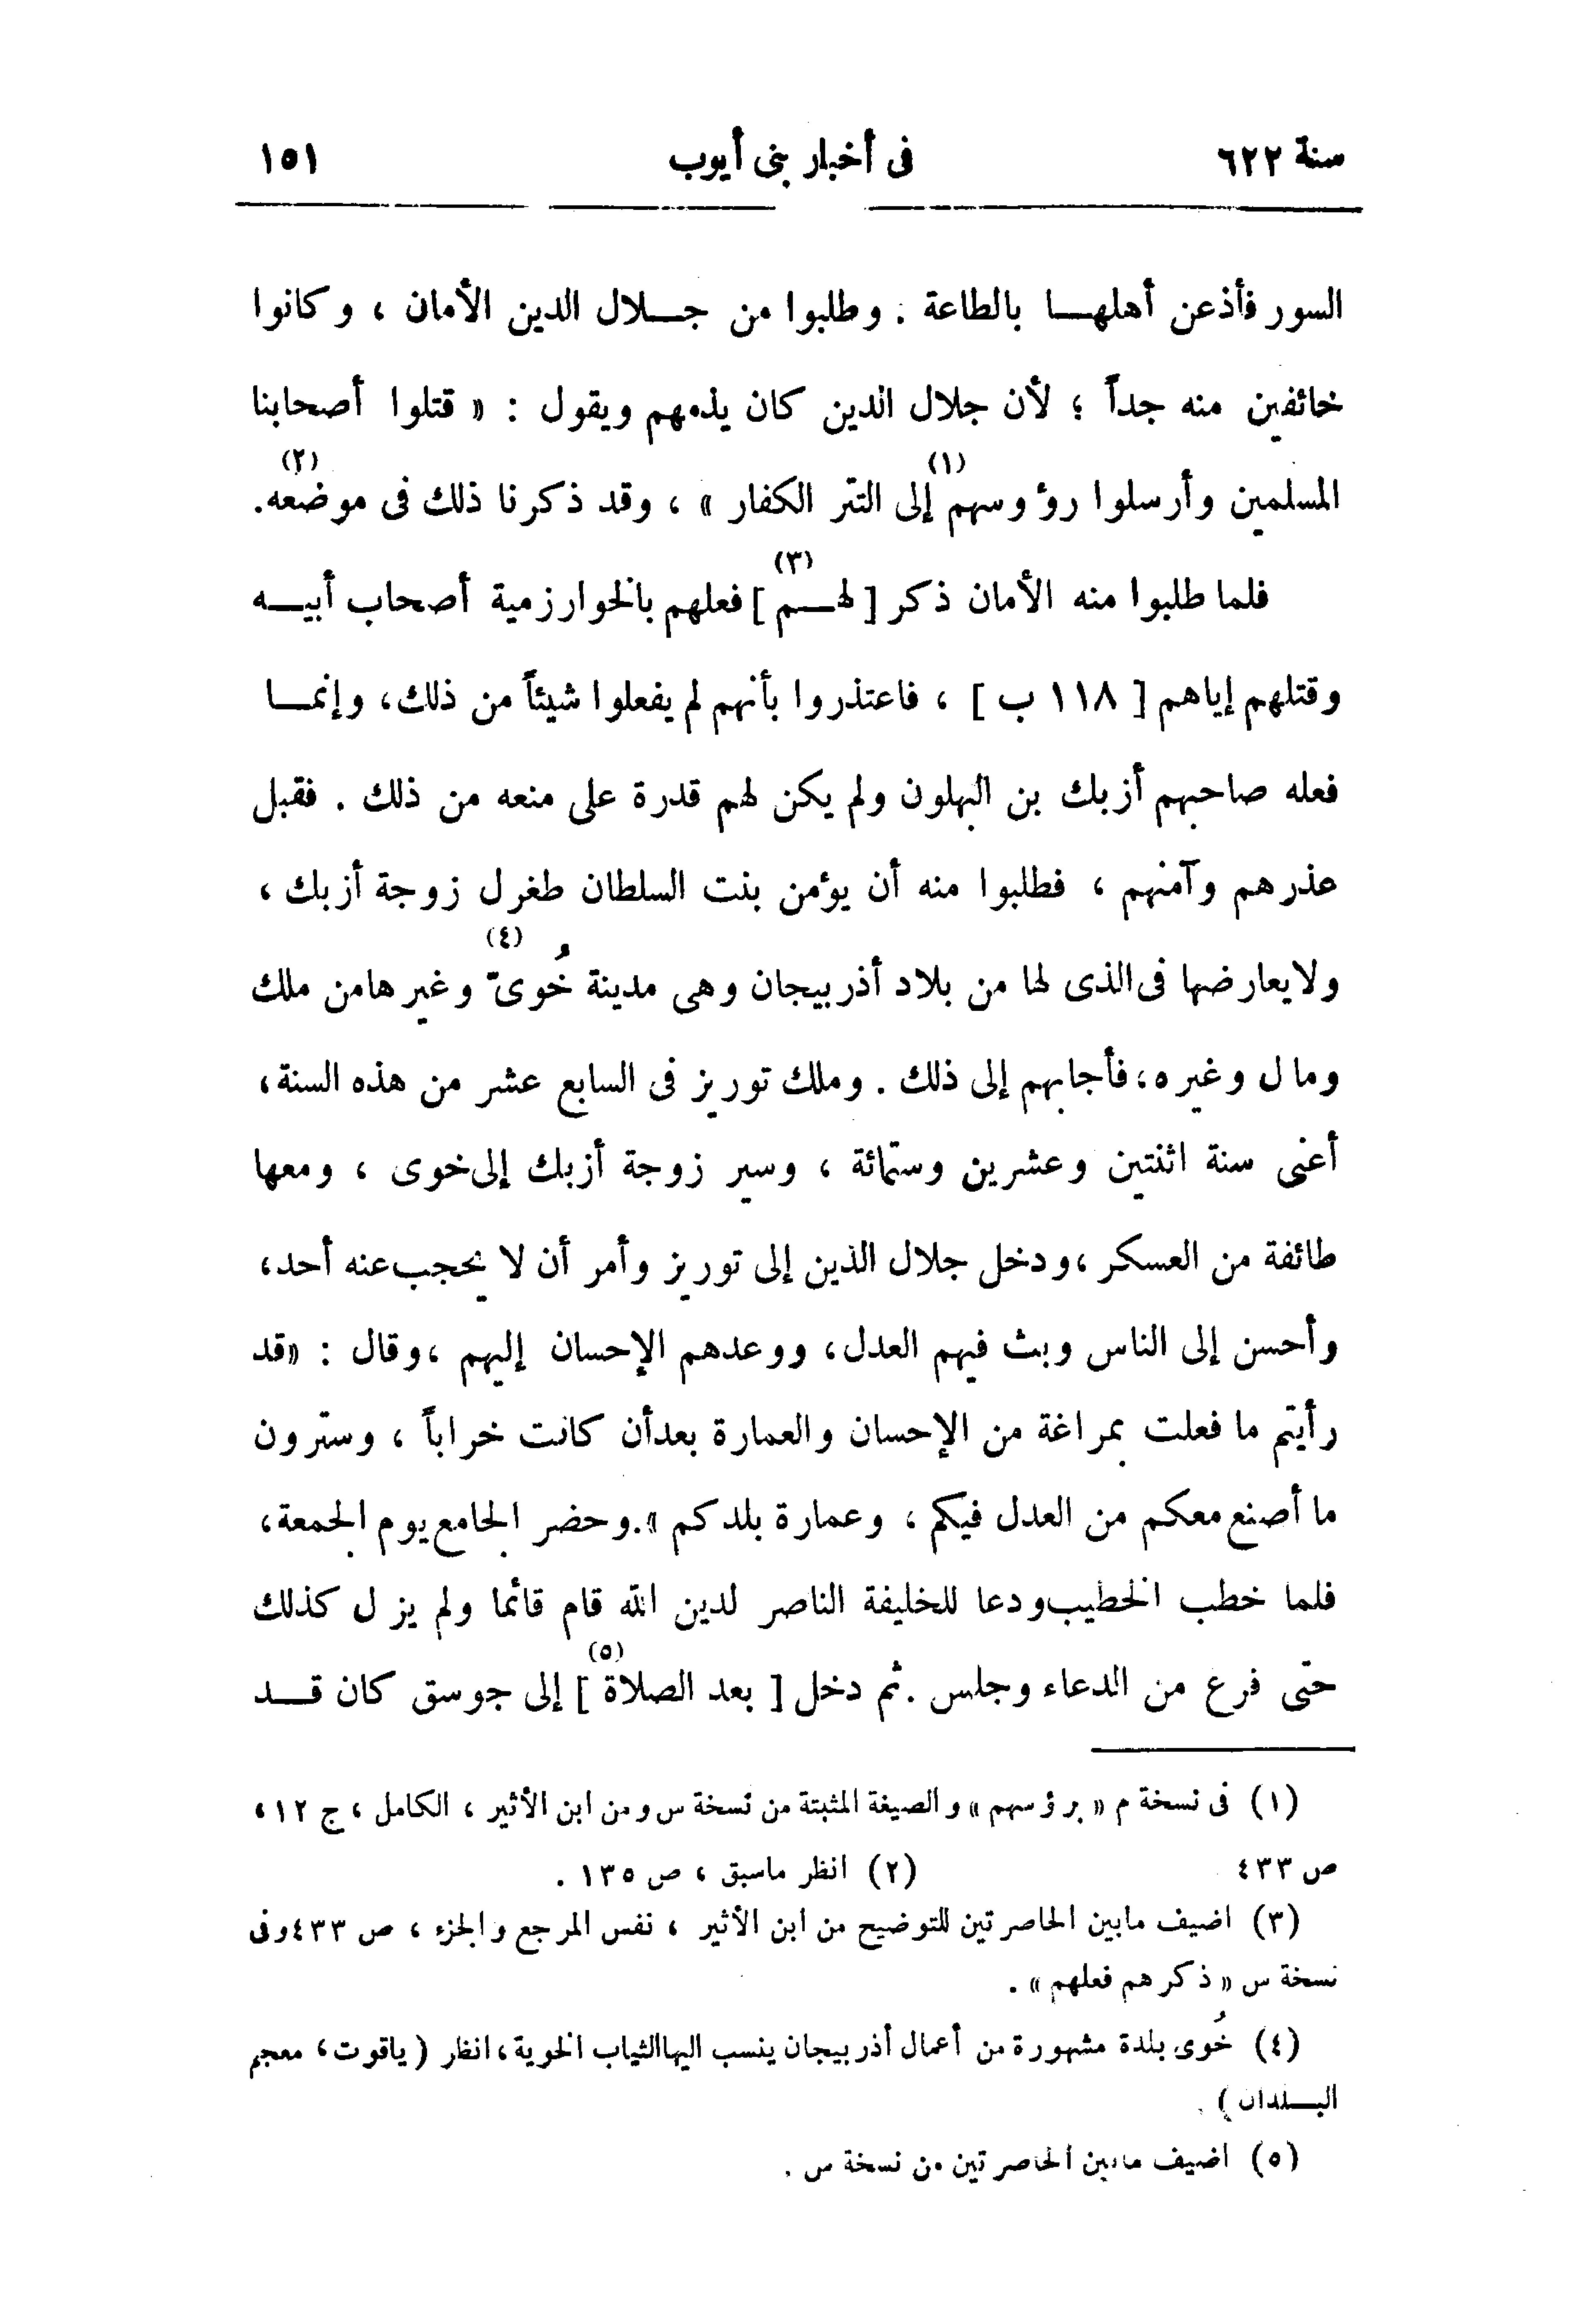 سنة ٦٢٢ فى أخبار بنى أيوب ١٥١
السور فأذعن أهلهـا بالطاعة . وطلبوا من جـلال الدين الأمان ، وكانوا
خائفين منه جداً ؛ لأن جلال الدين كان يذمهم ويقول : « قتلوا أصحابنا
المسلمين وأرسلوا رؤوسهم (١) إلى التتر الكفار » ، وقد ذكرنا ذلك فى موضعه (٢).
فلما طلبوا منه الأمان ذكر [ لهـم (٣) ] فعلهم بالخوارزمية أصحاب أبيـه
وقتلهم إياهم [ ١١٨ ب ] ، فاعتذروا بأنهم لم يفعلوا شيئاً من ذلك، وإنمـا
فعله صاحبهم أزبك بن البهلون ولم يكن لهم قدرة على منعه من ذلك . فقبل
عذرهم وآمنهم ، فطلبوا منه أن يؤمن بنت السلطان طغرل زوجة أزبك ،
ولايعارضها فى الذى لها من بلاد أذربيجان وهى مدينة خُوىّ (٤) وغيرها من ملك
ومال وغيره، فأجابهم إلى ذلك . وملك توريز فى السابع عشر من هذه السنة،
أعنى سنة اثنتين وعشرين وستمائة ، وسير زوجة أزبك إلى خوى ، ومعها
طائفة من العسكر ،ودخل جلال الدين إلى توريز وأمر أن لا يحجب عنه أحد،
وأحسن إلى الناس وبث فيهم العدل، ووعدهم الإحسان إليهم ،وقال : «قد
رأيتم ما فعلت بمراغة من الإحسان والعمارة بعدأن كانت خراباً ، وسترون
ما أصنع معكم من العدل فيكم ، وعمارة بلدكم ».وحضر الجامع يوم الجمعة،
فلما خطب الخطيب ودعا للخليفة الناصر لدين الله قام قائما ولم يزل كذلك
حتى فرع من الدعاء وجلس .ثم دخل [ بعد الصلاة (٥) ] إلى جوسق كان قـد
(١) فى نسخة م « برؤسهم » والصيغة المثبتة من نسخة س ومن ابن الأثير ، الكامل ، ج ١٢ ،
ص ٤٣٣ (٢) انظر ماسبق ، ص ١٣٥ .
(٣) اضيف مابين الحاصرتين للتوضيح من ابن الأثير ، نفس المرجع والجزء ، ص ٤٣٣ وفى
نسخة س « ذكرهم فعلهم » .
(٤) خُوى بلدة مشهورة من أعمال أذربيجان ينسب اليها الثياب الخوية ، انظر ( ياقوت ، معجم
البـلدان ) .
(٥) اضيف مابين الحاصرتين من نسخة س .